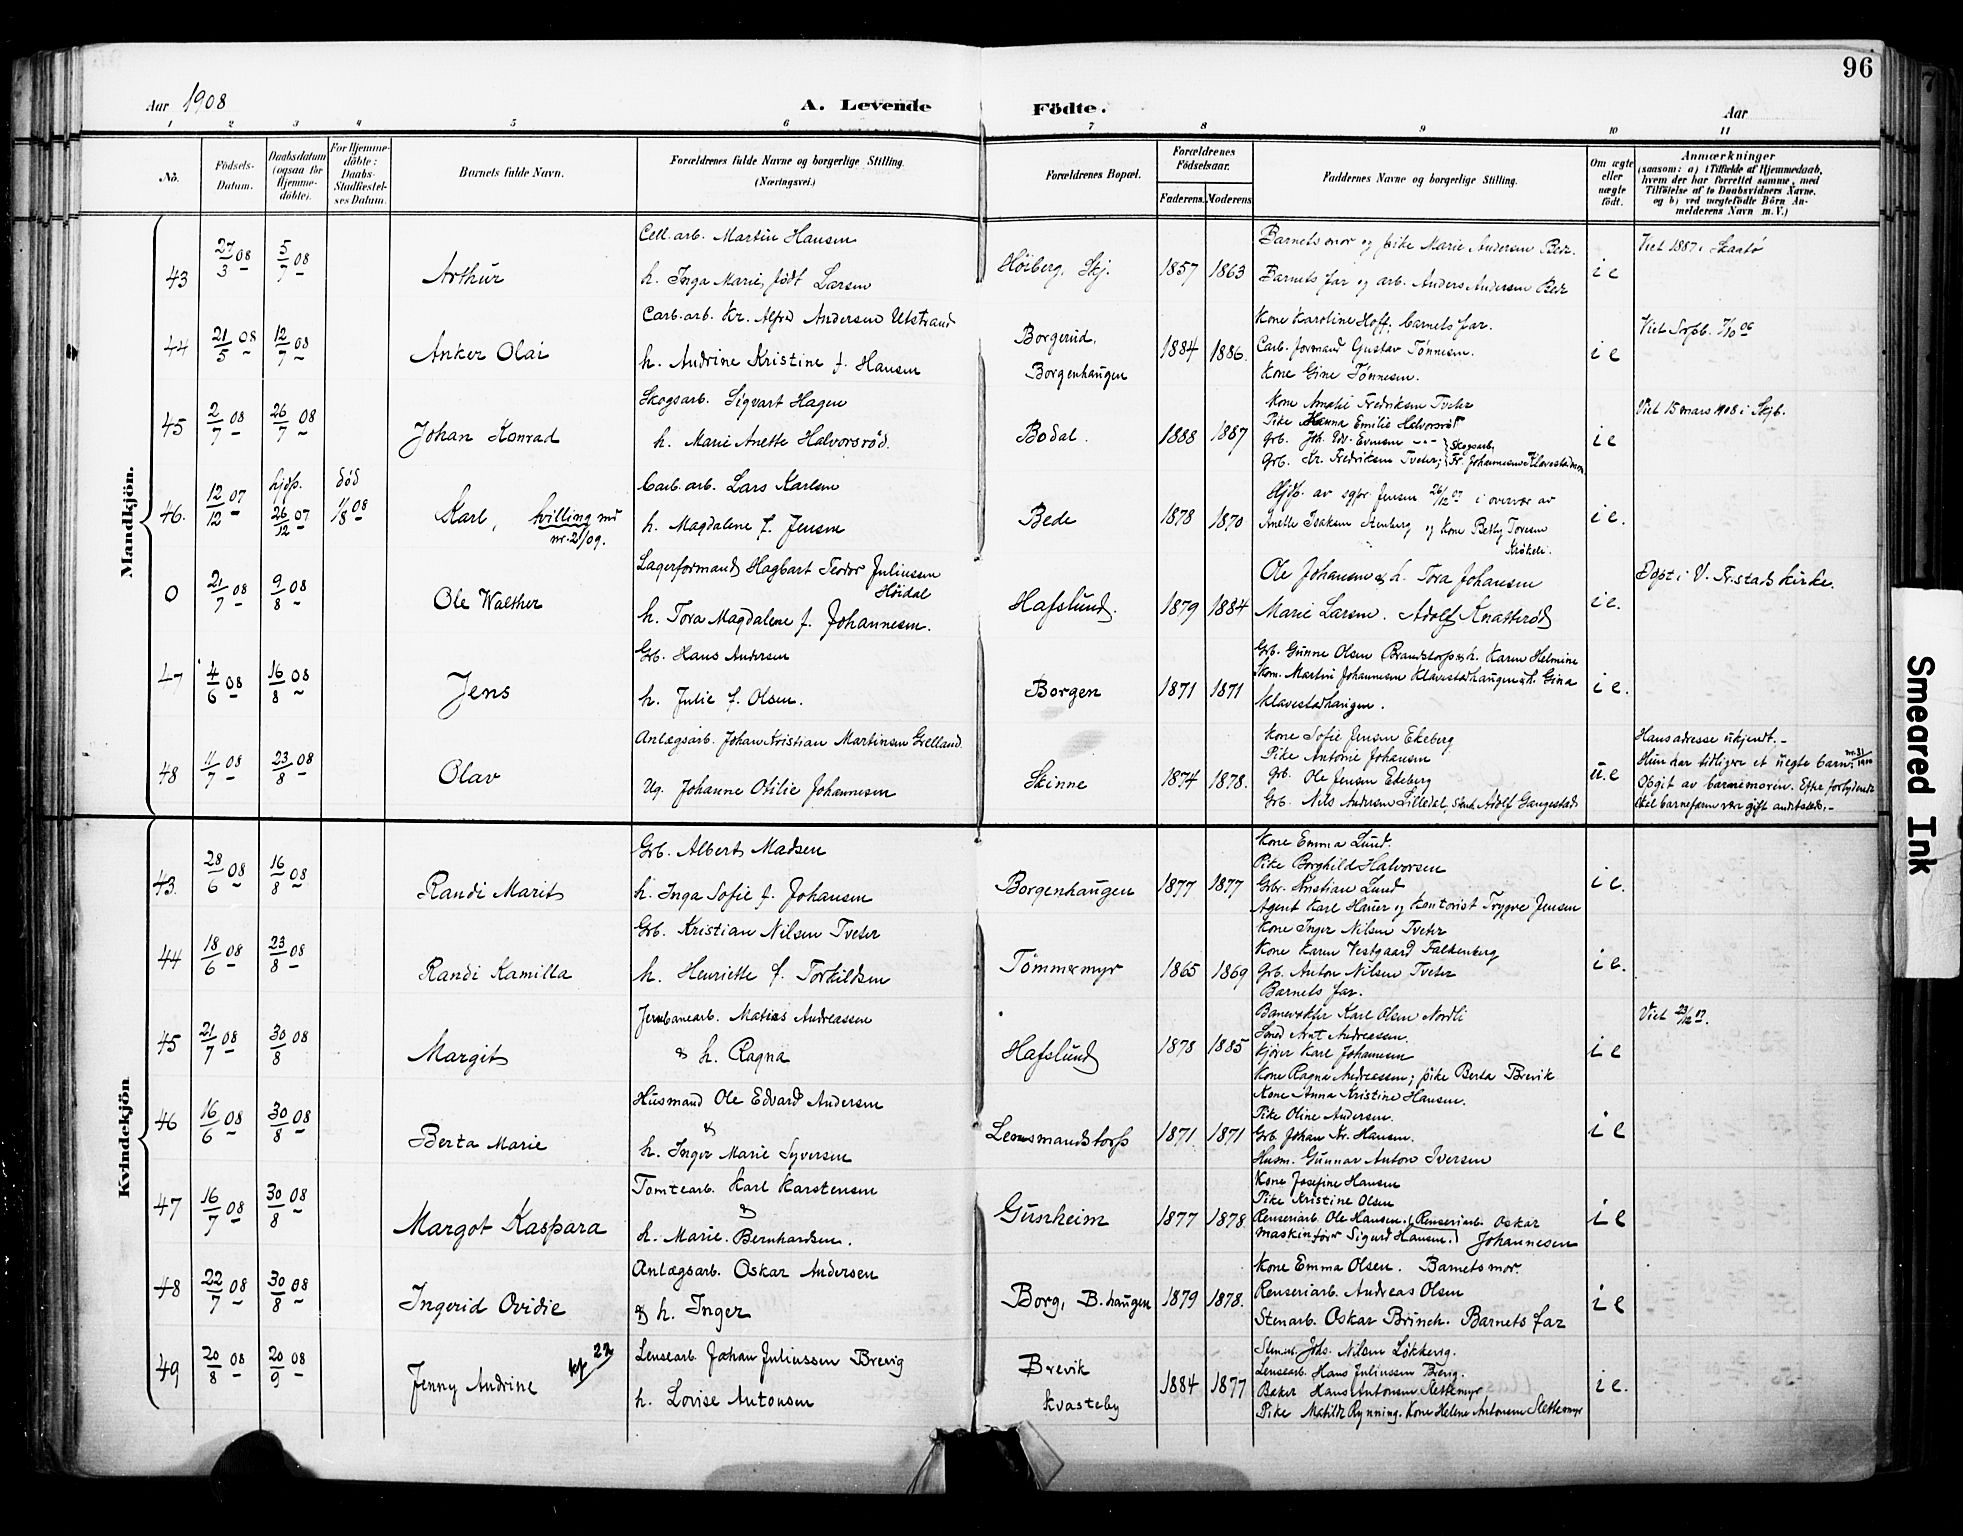 96
Aar 1908
A. Levende Födte.
Aar
1 2 3 4 5 6 7 8 9 10 11
No.
Födsels-Datum.
Daabsdatum (ogsaa for Hjemme-döbte).
For Hjemme-döbte: Daabs-Stadfæstel-ses Datum.
Barnets fulde Navn.
Forældrenes fulde Navne og borgerlige Stilling. (Næringsvei.)
Forældrenes Bopæl.
Forældrenes Födselsaar.
Faderens Moderens
Faddernes Navne og borgerlige Stilling.
Om ægte eller uægte födt.
Anmærkninger
(saasom: a) i Tilfælde af Hjemmedaab,
hvem der har forrettet samme, med
Tilföielse af to Daabsvidners Navne.
og b) ved uægtefödte Börn An-
melderens Navn m. V.)
Mandkjön.
43 27/3 08 5/7 08 Arthur
Cell.arb. Martin Hansen
h. Inga Marie, født Larsen
Høiberg, Skj. 1857 1863
Barnets mor og pike Marie Andersen
Barnets far og arb. Anders Andersen
i e
Viet 1887 i Skaatø
44 21/5 08 12/7 08 Anker Olai
Carb.arb. Kr. Alfred Andersen Utstrand
h. Andrine Kristine f. Hansen
Borgerud, Borgenhaugen 1884 1886.
Kone Karoline Hoff; barnets far.
Carb. formand Gustav Tønnesen.
Kone Gine Tønnesen.
i e
45 2/7 08 26/7 08 Johan Konrad
Skogsarb. Sigvart Hagen
h. Marie Anette Halvorsrød.
Bodal. 1888 1887
Kone Amalie Fredriksen Tveter
Pike Hanna Emilie Halvorsrød
Grb. Joh. Edv. Evensen
Grb. Kr. Fredriksen Tveter; Skogsarb. Fr. Johannesen Klavestadmoen
i e
Viet 15 mars 1908 i Skjb.
46. 12/12 07 hjdp. 26/12 07 død 1/8 08
Karl, tvilling med nr. 21/09.
Carb.arb. Lars Karlsen
h. Magdalene f. Jensen
Bede 1878 1870
Hjdp. av sgpr. Jensen 26/12 07 i overvær av
Anette Isaksen Stenberg og Kone Betsy Toresen
i e.
0 21/7 08 9/8 08 Ole Walther
Lagerformand Hagbart Teodor Juliussen Høidal
h. Tora Magdalene f. Johannesen.
Hafslund. 1879 1884
Ole Johansen & h. Tora Johansen
Marie Larsen. Adolf Knatterød
i e.
Døpt i V. Fr.stad kirke.
47 4/6 08 16/8 08 Jens
Grb. Hans Andersen
h. Julie f. Olsen.
Borgen 1871 1871
Grb. Gunne Olsen Brandstorp & h. Karen Helmine
Skom. Martin Johannesen Klavestadhaugen & h. Gina
Klavestadhaugen.
i e.
48 11/7 08 23/8 08 Olav
Anlægsarb. Johan Kristian Martinsen Grelland.
Ug. Johanne Otilie Johannesen
Skinne 1874 1878.
Kone Sofie Jensen Ekeberg
Pike Antonie Johansen
Grb. Ole Jensen Ekeberg
Grb. Nils Andersen Lilledal, Adolf Gangestad
u. e
Hans adresse ukjendt.-
Hun har tidligere et uegte barn, nr. 31/1900
Opgit av barnemoren. Efter forlydende
skal barnefaren være gift andetsteds.-
Kvindekjön
43 28/6 08 16/8 08 Randi Marit
Grb. Albert Madsen
h. Inga Sofie f. Johansen
Borgenhaugen 1877 1877
Kone Emma Lund.
Pike Borghild Halvorsen
Grbr. Kristian Lund
Agent Karl Hauer og Kontorist Trygve Jensen
i e.
44 18/6 08 23/8 08 Randi Kamilla
Grb. Kristian Nilsen Tveter
h. Henriette f. Torkildsen
Tømmermyr 1865 1869
Kone Inger Nilsen Tveter
Kone Karen Vestgaard Falkenberg
Grb. Anton Nilsen Tveter
Barnets far.
i e.
45 21/7 08 30/8 08 Margit
Jernbanearb. Matias Andreassen
& h. Ragna
Hafslund 1878 1885
Banevokter Karl Olsen Nordli
Smed Arnt Andreassen.
Kjører Karl Johannesen
Kone Ragna Andreassen; pike Berta Brevik
i e
Viet 23/12 07.
46 16/6 08 30/8 08 Berta Marie
Husmand Ole Edvard Andersen
&
h. Inger Marie Syversen
Lensmandstorp 1871 1871
Kone Anna Kristine Hansen.
Pike Oline Andersen.
Grb. Johan Kr. Hansen.
Husm. Gunnar Anton Iversen
i e
47 16/7 08 30/8 08 Margot Kaspara
Tomtearb. Karl Karstensen
&
h. Marie. Bernhardsen.
Gunheim 1877 1878
Kone Josefine Hansen
Pike Kristine Olsen
Renseriarb. Ole Hansen. Renseriarb. Oskar Johannesen
Maskinfører Sigurd Hansen.
i e
48 22/7 08 30/8 08 Ingerid Ovidie
Anlægsarb. Oskar Andersen
& h. Inger
Borg, B.haugen 1879 1878.
Kone Emma Olsen. Barnets mor.
Renseriarb. Andreas Olsen
Stenarb. Oskar Brinch. Barnets far
i e
49 20/8 08 20/9 08 Jenny Andrine
Lensearb. Johan Juliussen Brevig
h. Lovise Antonsen
Brevik Kvasteby 1884 1877
Stenarb. Johs. Nilsen Løkkevig.
Lensearb. Hans Juliussen Brevig.
Baker Hans Antonsen Slettemyr
Pike Matilde Rynning. Kone Helene Antonsen Slettemyr
i e.
Smeared Ink